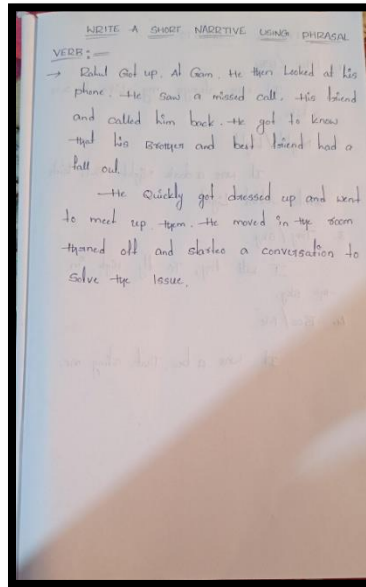 WRITE A SHORT NARRTIVE USING PHRASAL
VERB:-
→ Rahul Got up. At 6am. He then Looked at his
phone. He saw a missed call. His friend
and called him back. He got to know
that his Brother and best friend had a
fall out.
He Quickly got dressed up and went
to meet up them. He moved in the room
turned off and started a conversation to
Solve the Issue.